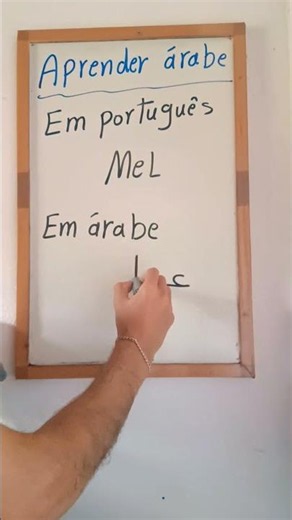 Aprender árabe
Em português
Mel
Em árabe